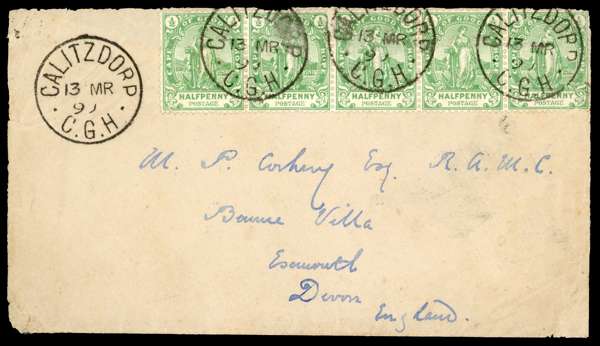 CALITZDORP
13 MR
99
C.G.H.
CALITZDORP
13 MR
C.G.H.
CALITZDORP
13 MR
C.G.H.
CALITZDORP
13 MR
C.G.H.
HALFPENNY HALFPENNY HALFPENNY HALFPENNY HALFPENNY
POSTAGE POSTAGE POSTAGE POSTAGE POSTAGE
M. P. Esq. R. A. M. C.
Villa
Exmouth
Devon
England.